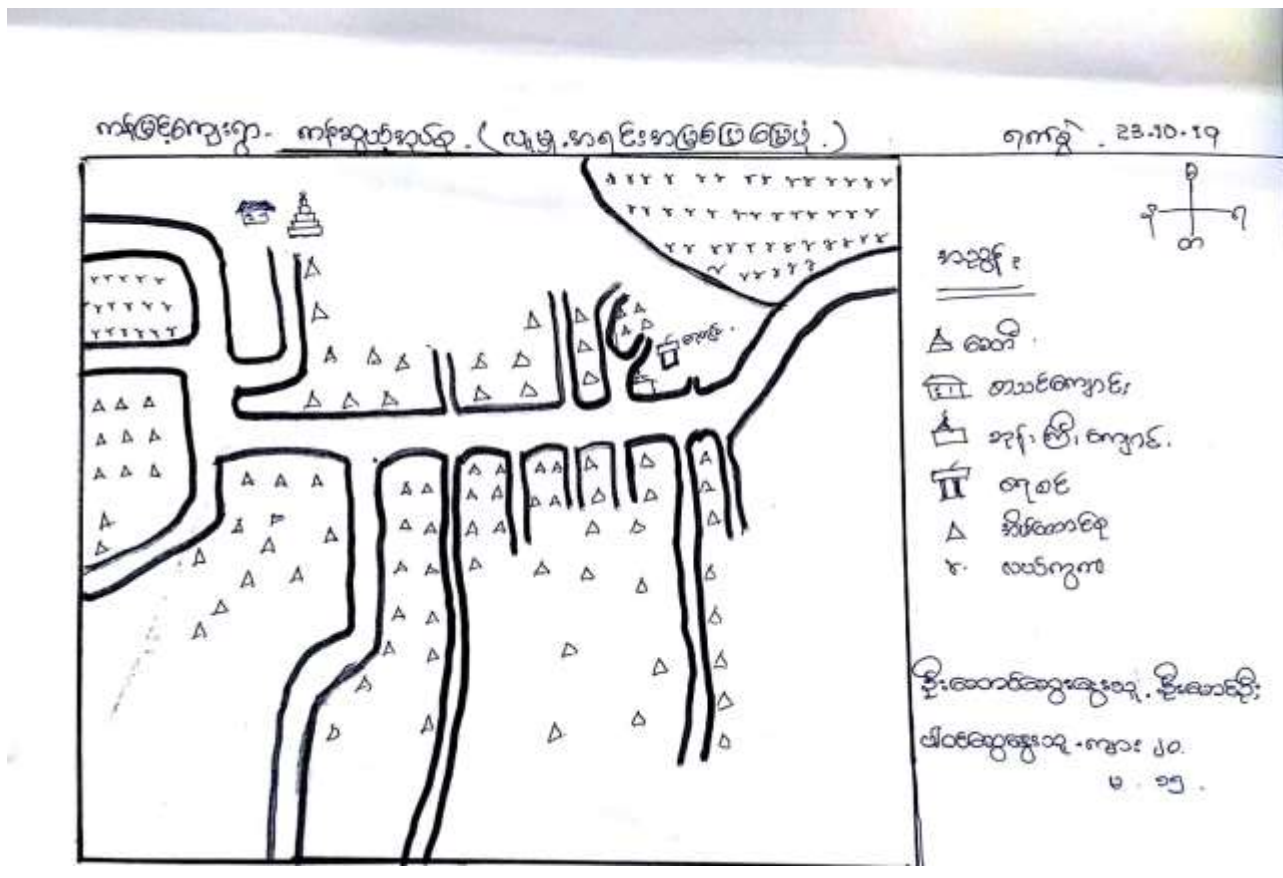 ကန်မြင့်ကျေးရွာ. ကန်ဆွယ်အုပ်စု. (လူမှု.အရင်းအမြစ်ပြမြေပုံ.) ရက်စွဲ. 23.10.19
မ
န ရ
တ
အညွှန်း
စေတီ.
စာသင်ကျောင်း
ဘုန်းကြီးကျောင်း.
ရေစင်
ရေစင်.
အိမ်ထောင်စု
လယ်ကွက်
ဦးဆောင်ဆွေးနွေးသူ.
ပါဝင်ဆွေးနွေးသူ - ကျား ၂၀.
မ. ၁၅.